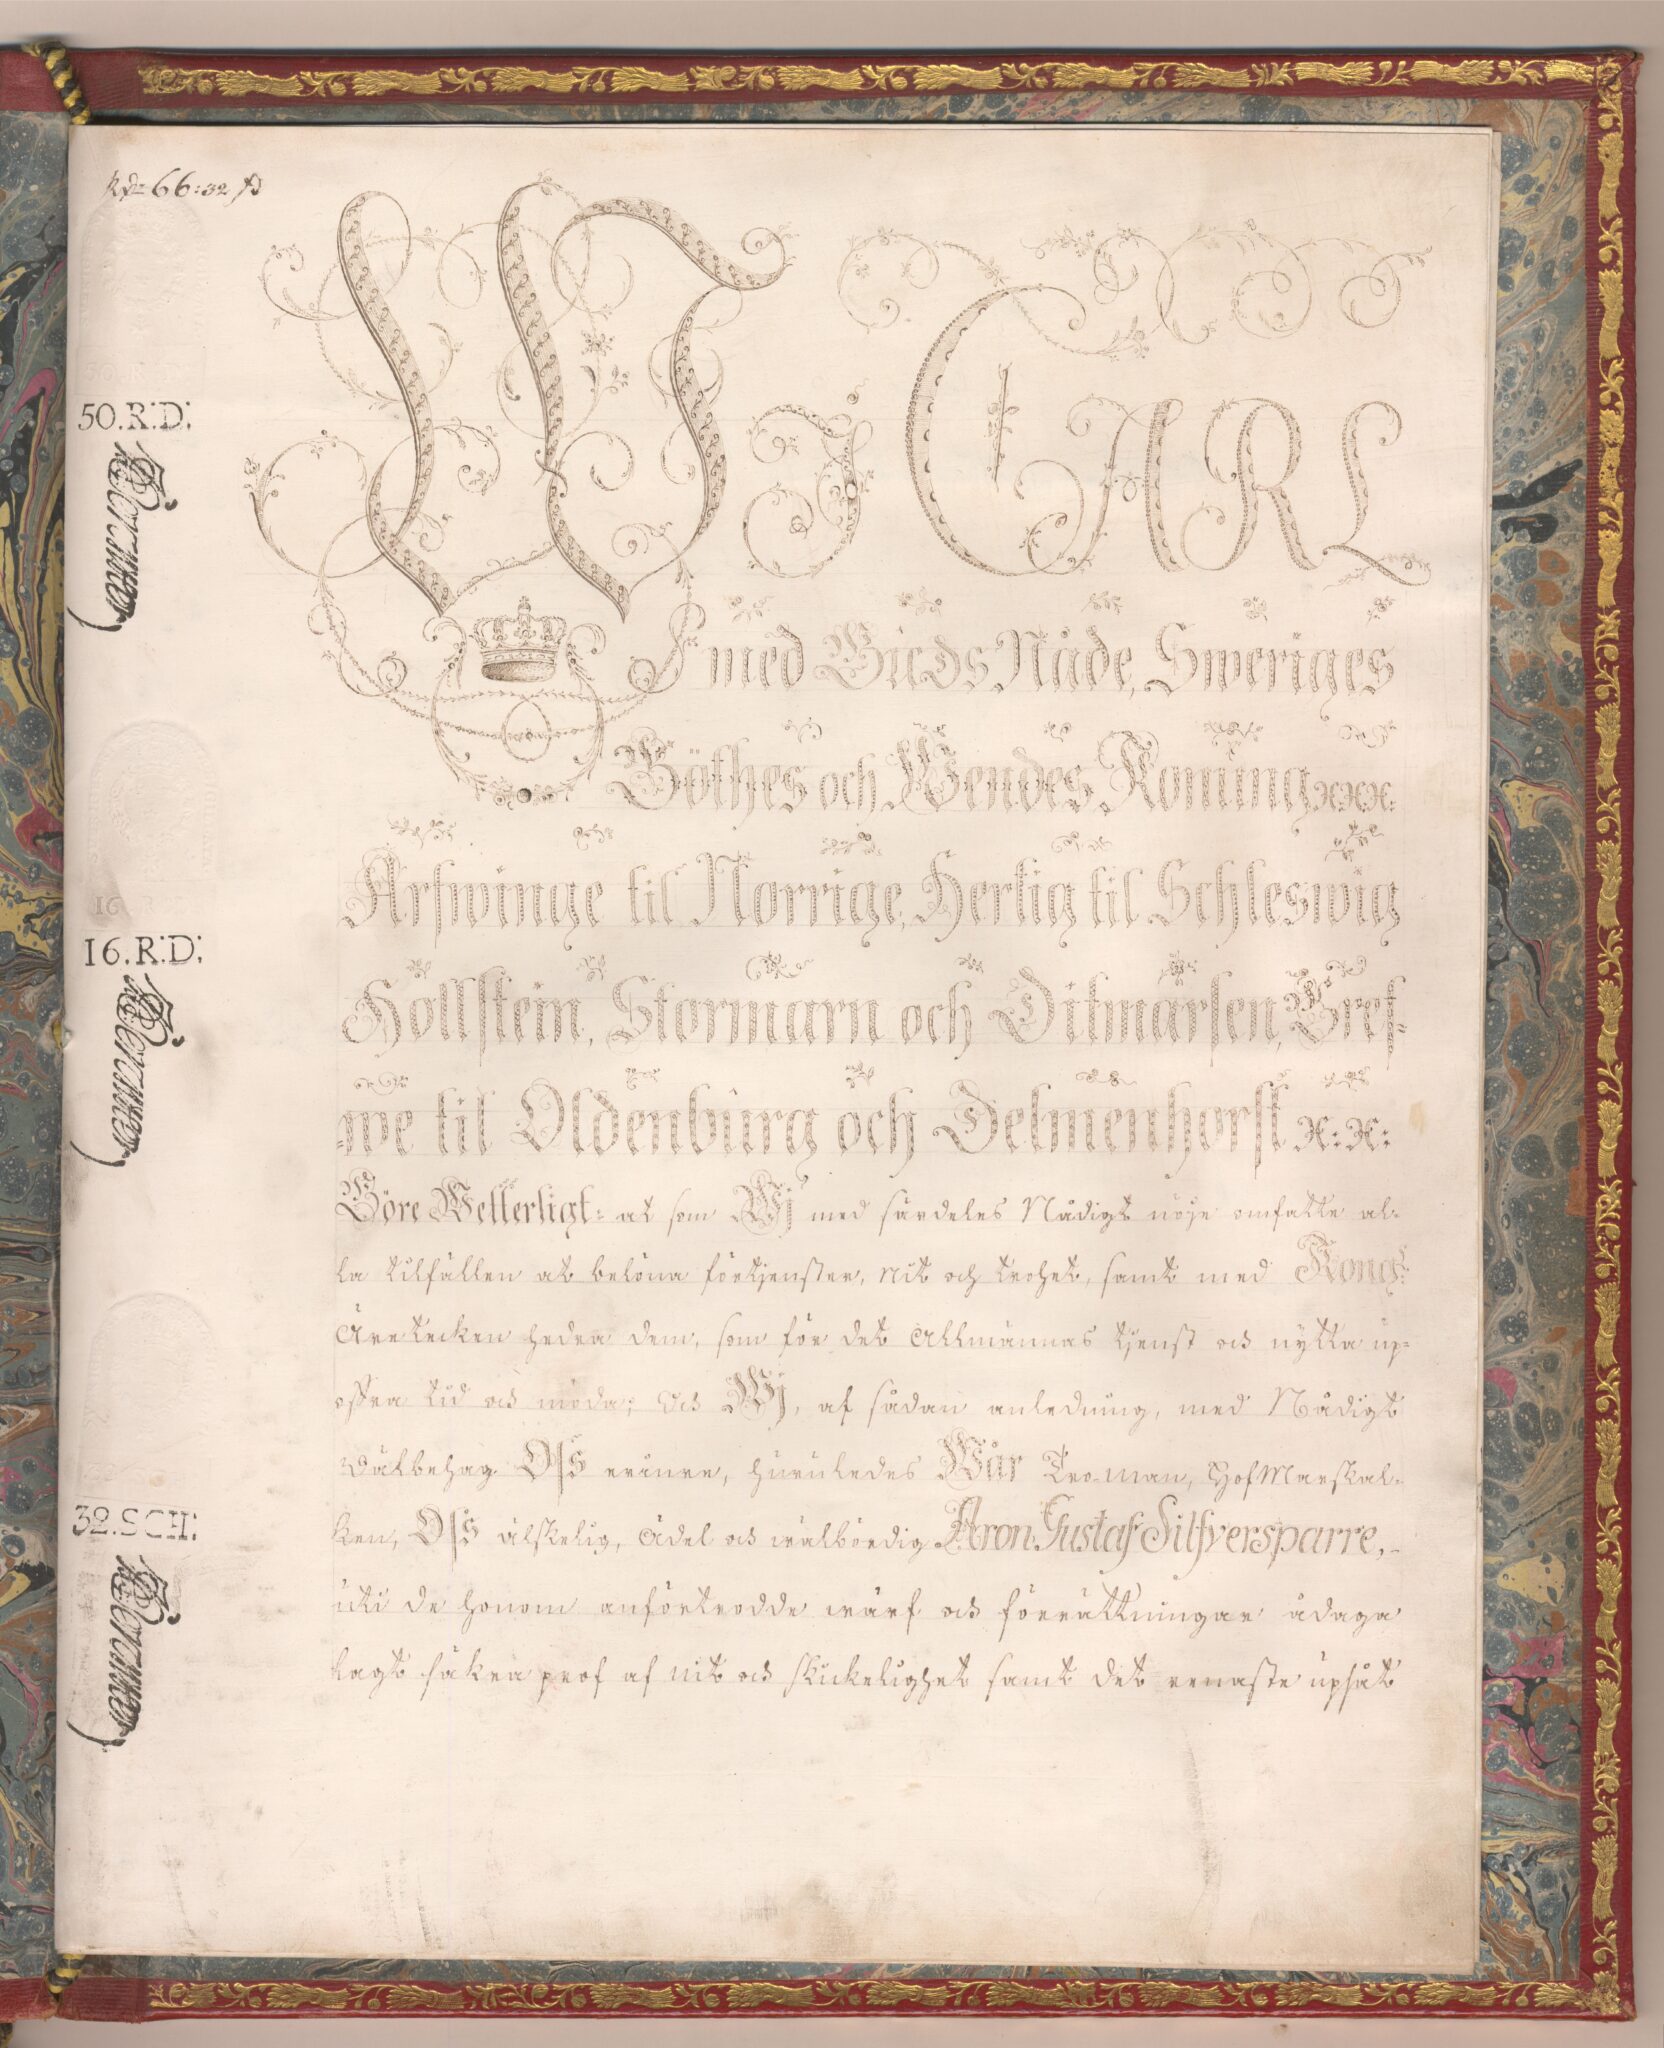 66:32
50.R:D:
16.R:D:
32.SCH:
Wi CARL
med Guds Nåde, Sweriges
Göthes och Wendes Konung xxx.
Arfwinge til Norrige, Hertig til Schleswig
Hollstein, Stormarn och Ditmarsen, Gref-
we til Oldenburg och Delmenhorst x:x:
Göre Wetterligt: at som Wj med särdeles Nådigt nöje omfatte al-
la tilfällen at belöna förtjenster, nit och trohet, samt med Kongl:
Äretecken hedra dem, som för det Allmännas tjenst och nytta up-
offra tid och möda; Och Wj, af sådan anledning, med Nådigt
wälbehag Oss erinre, huruledes Wår Tro-man, HofMarskal-
ken, Oss älskelig, ädel och wälbördig Aron Gustaf Silfversparre,
uti de honom anförtrodde wärf och förrättningar ådaga
lagt säkra prof af nit och skickelighet samt det renaste upsåt